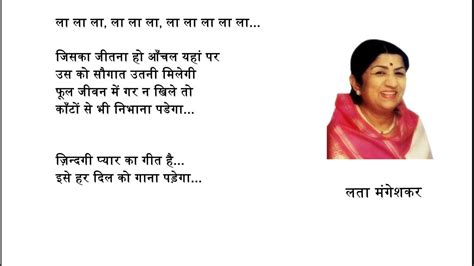 ला ला ला, ला ला ला, ला ला ला ला ला...
जिसका जीतना हो आँचल यहां पर
उस को सौगात उतनी मिलेगी
फूल जीवन में गर न खिले तो
काँटों से भी निभाना पडेगा...
ज़िन्दगी प्यार का गीत है...
इसे हर दिल को गाना पड़ेगा...
लता मंगेशकर